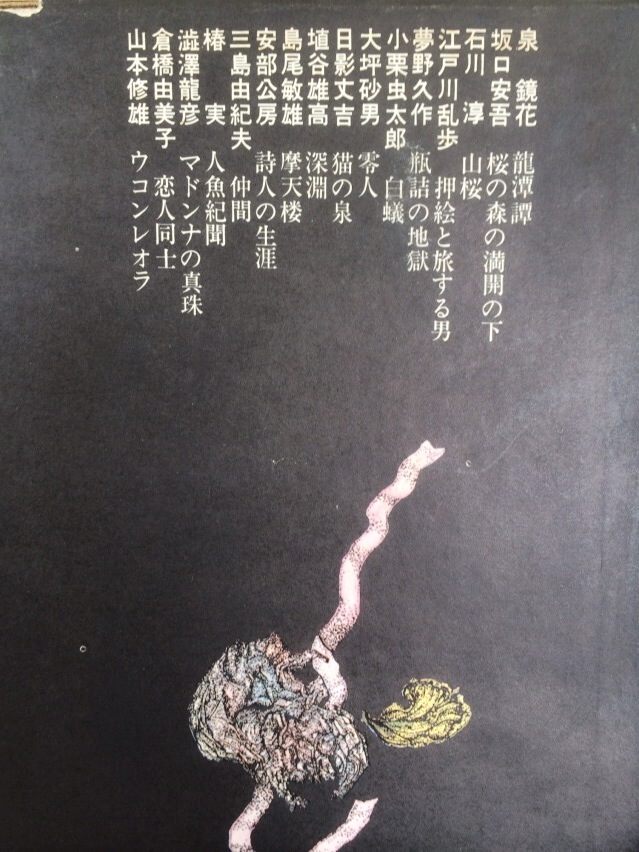 泉 鏡花 龍潭譚
坂口安吾 桜の森の満開の下
石川 淳 山桜
江戸川乱歩 押絵と旅する男
夢野久作 瓶詰の地獄
小栗虫太郎 白蟻
大坪砂男 零人
日影丈吉 猫の泉
埴谷雄高 深淵
島尾敏雄 摩天楼
安部公房 詩人の生涯
三島由紀夫 仲間
椿 実 人魚紀聞
澁澤龍彦 マドンナの真珠
倉橋由美子 恋人同士
山本修雄 ウコンレオラ